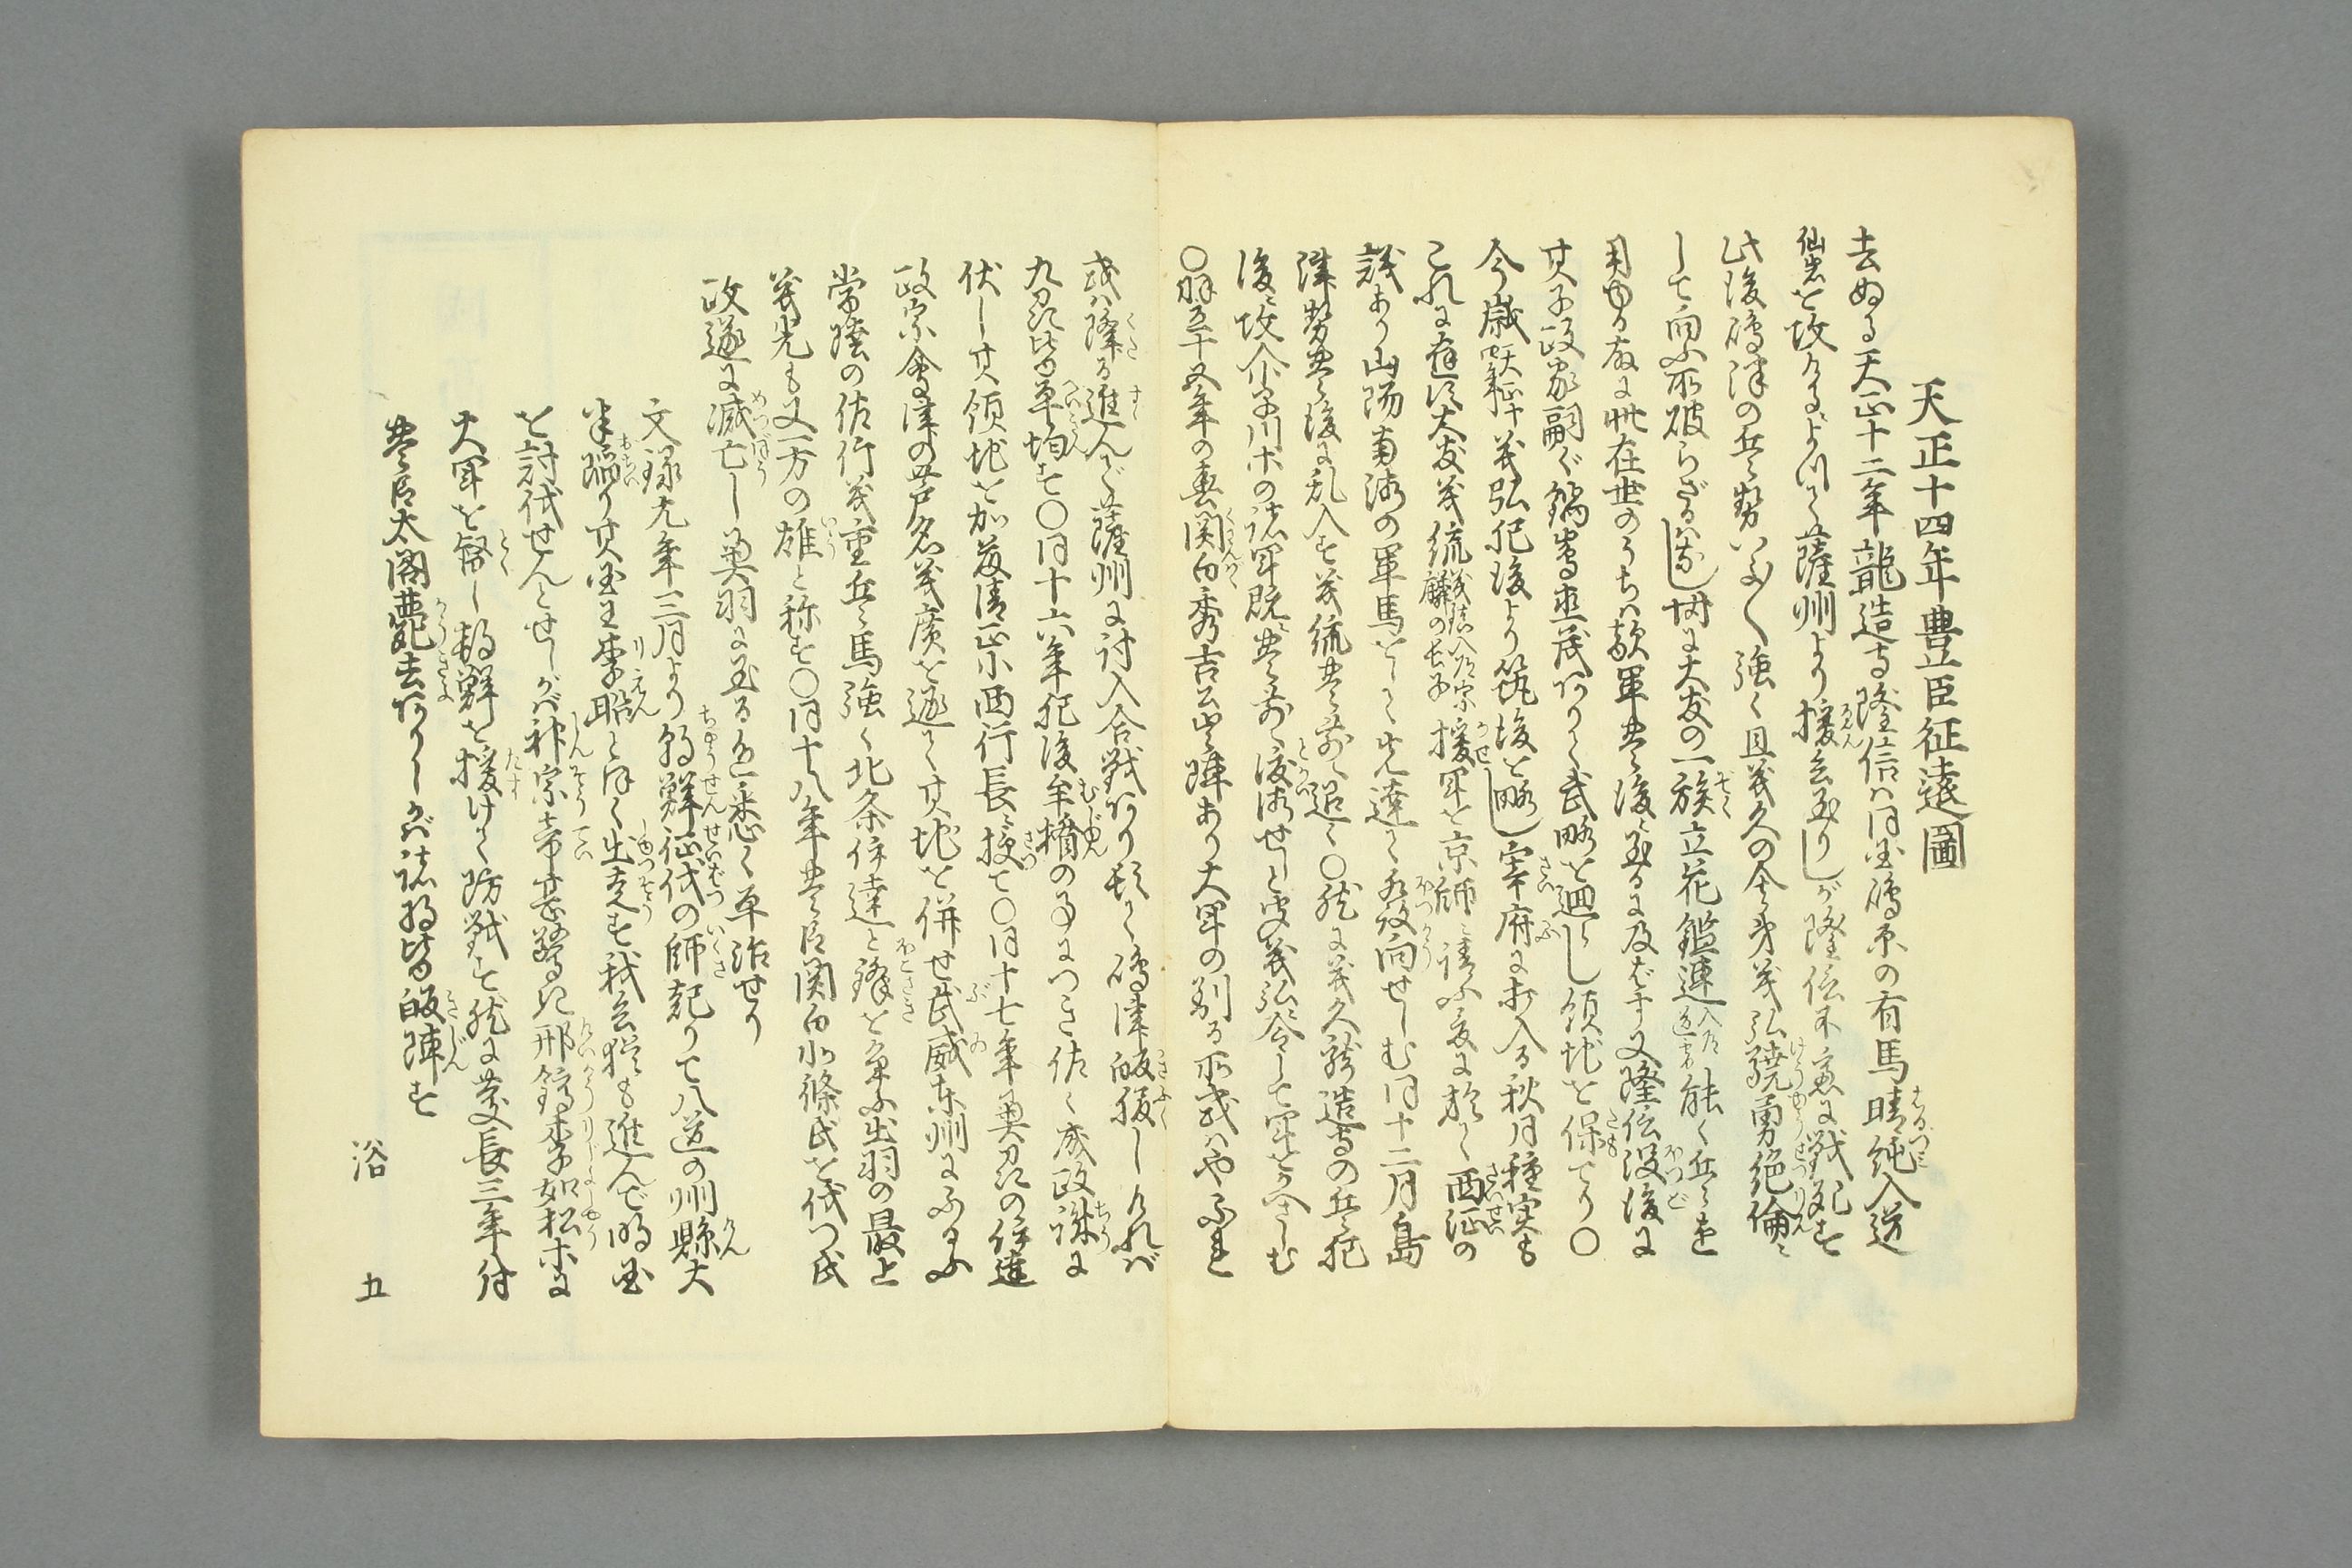 天正十四年豊臣征遠圖
去ぬる天正十二年龍造寺隆信ハ同国嶋原の有馬晴純入道
仙岩を攻けるによりて薩州より援兵至りしが隆信不意に戦死す
此後嶋津の兵勢いよ〳〵強く且義久の令弟義弘驍勇絶倫に
して向ふ所破らざるハなし時に大友の一族立花鑑連入道道雪能く兵を
用ゆる故に此在世のうちハ敵軍豊後に至るに及ばず又隆信没後に
其子政家嗣ぐ鍋嶋直茂ありて武略を廻らし領地を保てり〇
今歳天正十四年義弘肥後より筑後を略し宰府に打入る秋月種実も
これに應ず大友義統義鎮入道宗麟の長子援軍を京師に請ふ爰に於て西征の
議あり山陽南海の軍馬をして先達て發向せしむ同十二月島
津勢豊後に乱入す義統豊前に退く〇然に義久龍造寺の兵肥
後に攻入小早川等の諸軍既に豊前に渡海せしと聞義弘に令して軍をかへさしむ
〇翌天正十五年の春関白秀吉公出陣あり大軍の到る所或ハやぶれ
或ハ降る進んで薩州に討入合戦ありて嶋津皈服しけれバ
九州皆平均す〇同十六年肥後牟楯の事につき佐々成政誅に
伏し其領地を加藤清正小西行長に授て〇同十七年奥州の伊達
政宗會津の芦名義廣を逐て其地を併せ武威東州にふるふ
常陸の佐竹義重兵馬強く北条伊達と鋒を争ふ出羽の最上
義光も又一方の雄と称す〇同十八年豊臣関白北條氏を伐つ氏
政遂に滅亡し奥羽に至る迄悉く平治せり
文禄元年三月より朝鮮征伐の師起りて八道の州縣大
半陥り其国王李昖とほく出走す我兵猶も進んで明国
を討伐せんとせしかバ神宗帝甚驚き邢鎊李如松等に
大軍を督し朝鮮を援けて防戦す然に慶長三年八月
豊臣太閤薨去ありしかバ諸将皆皈陣す
浴
五